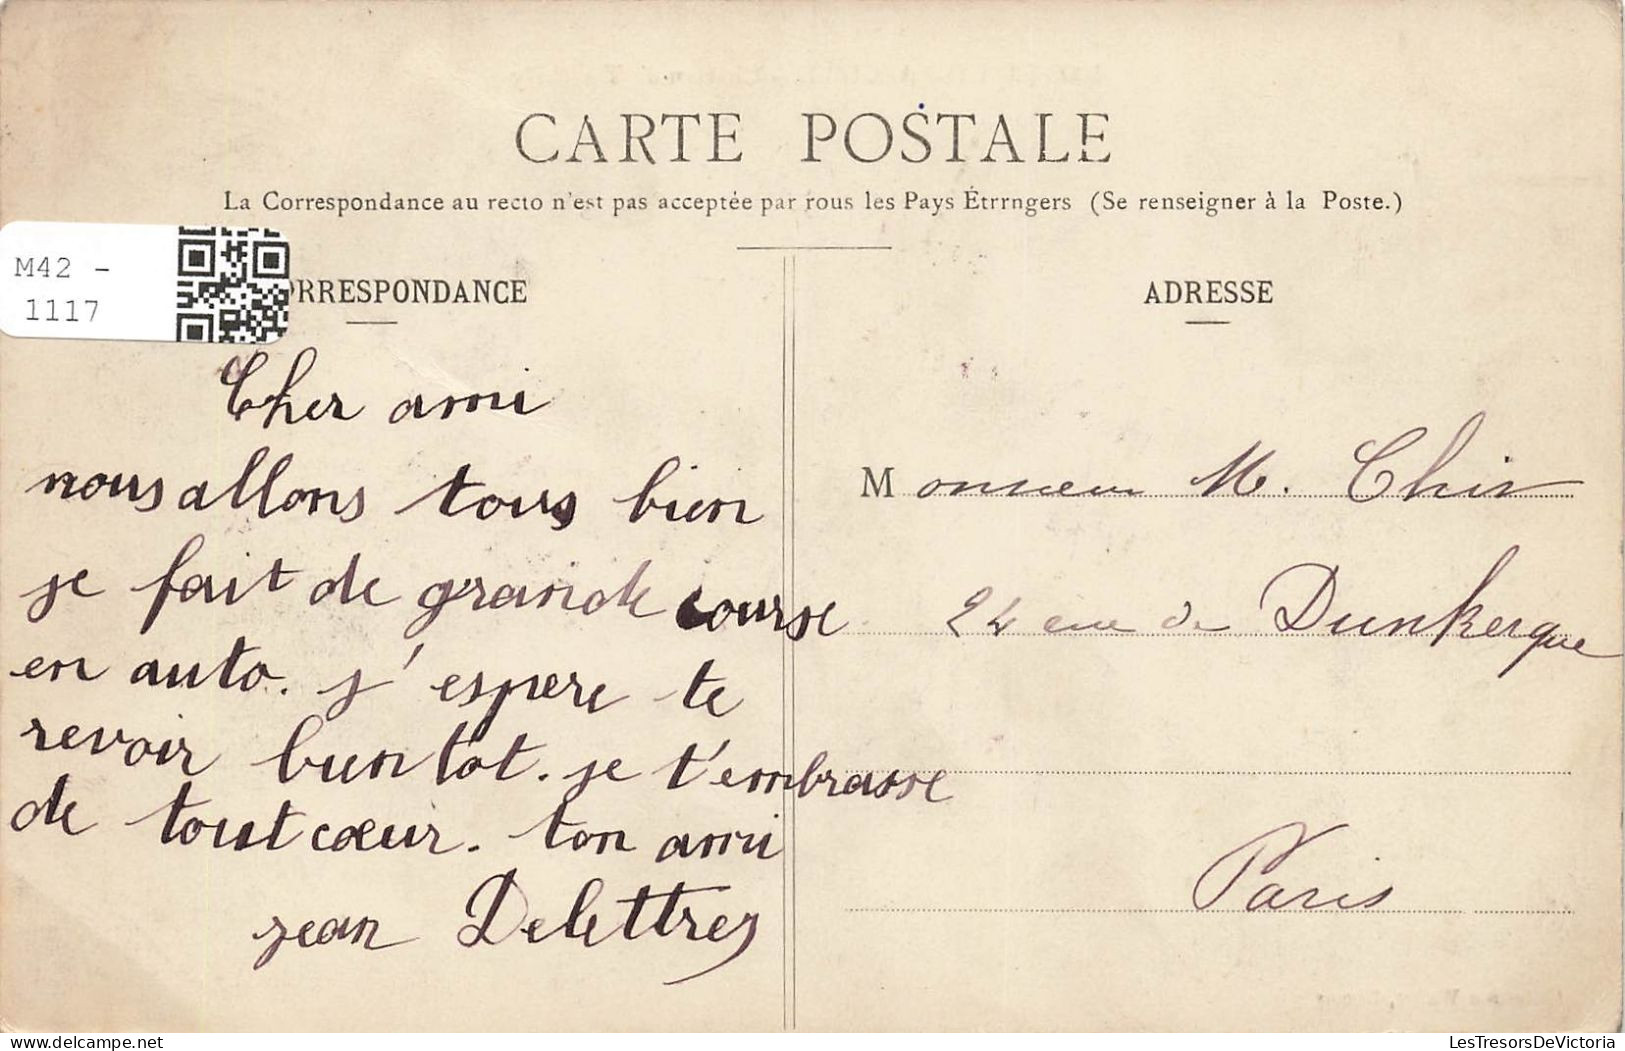 CARTE POSTALE
La Correspondance au recto n'est pas acceptée par tous les Pays Étrrngers (Se renseigner à la Poste.)
M42 -
1117
ORRESPONDANCE
Cher ami
nous allons tous bien
je fait de grande course
en auto. j'espere te
revoir bientot. je t'embrasse
de tout cœur. ton ami
jean Delettrez
ADRESSE
Monsieur M. Chir
24 rue de Dunkerque
Paris
LesTresorsDeVictoria